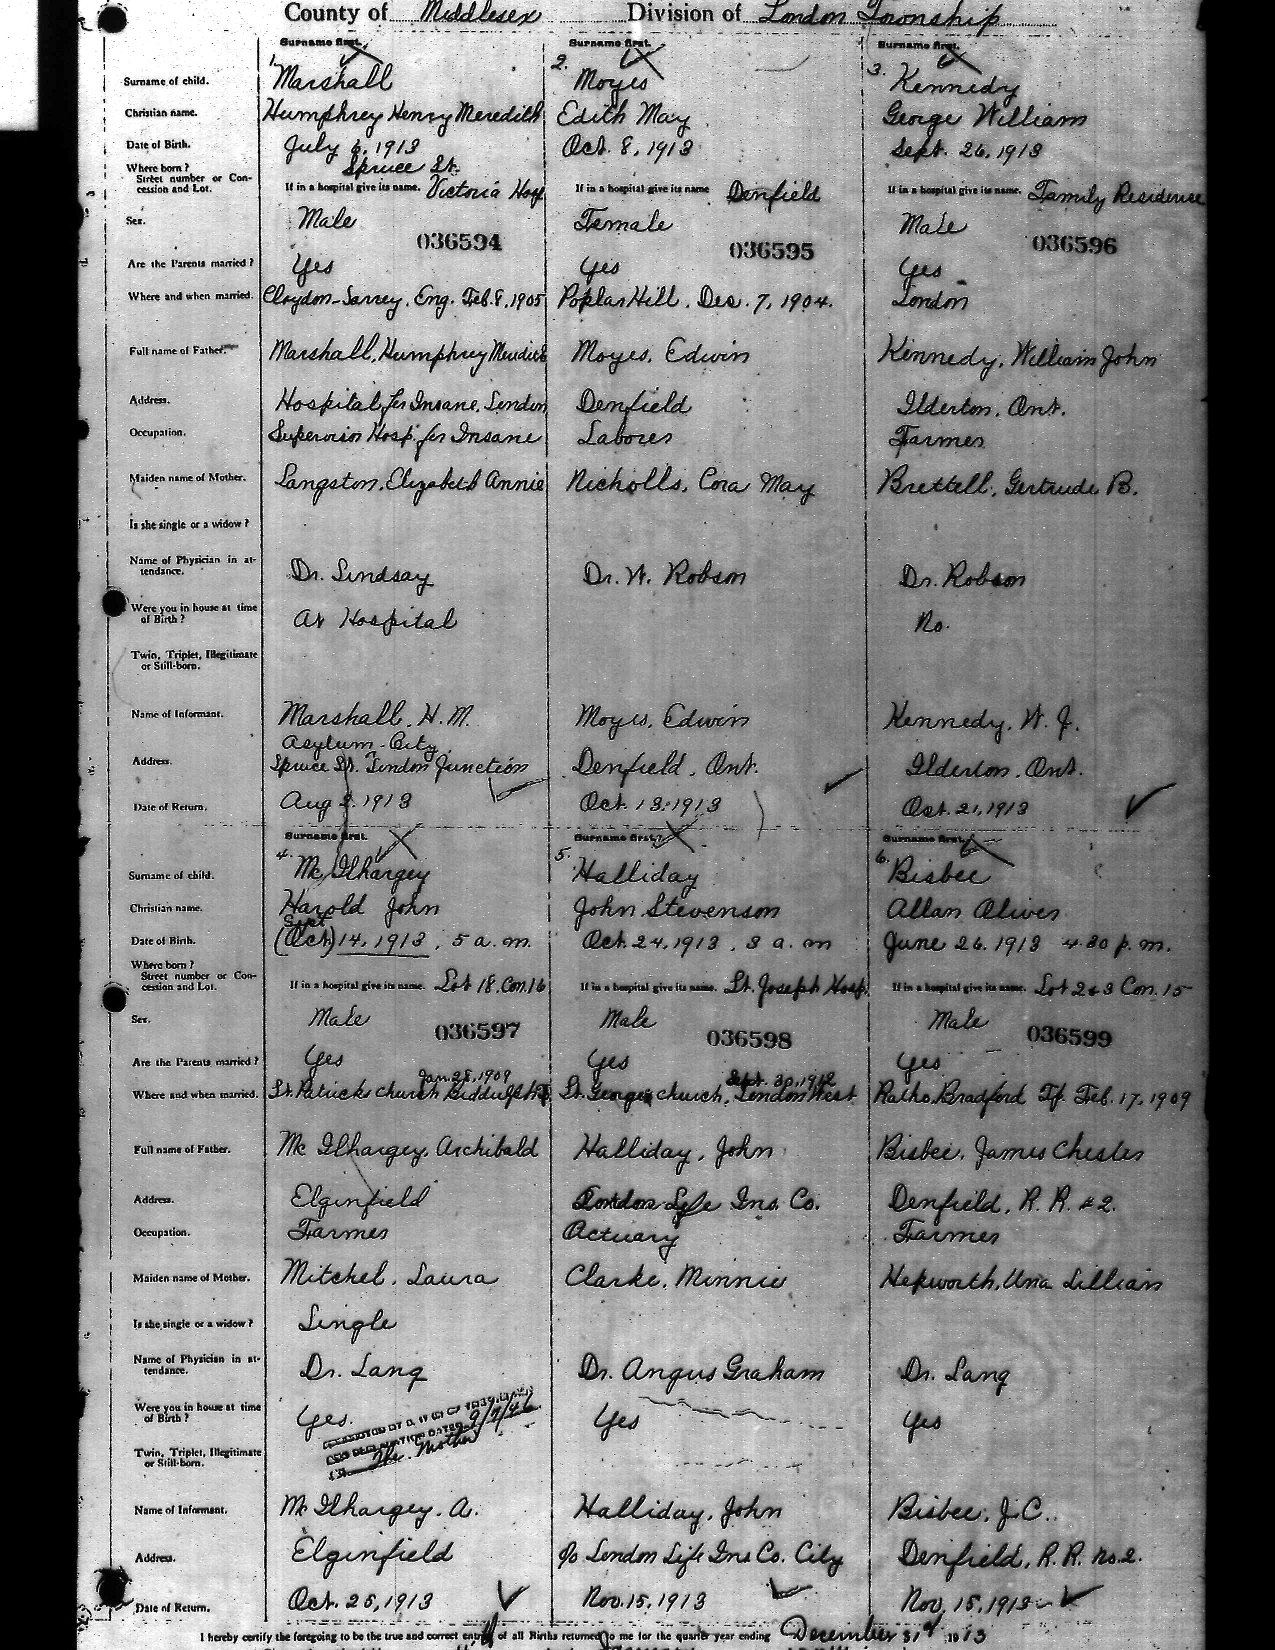 County of Middlesex Division of London Township
Surname first. Surname first. Surname first.
1. 2. 3.
Surname of child. Marshall Moyes Kennedy
Christian name. Humphrey Henry Meredith Edith May George William
Date of Birth. July 6, 1913 Oct. 8, 1913 Sept. 26, 1913
Where born? Spruce St.
Street number or Con-
cession and Lot. If in a hospital give its name. Victoria Hosp. If in a hospital give its name Denfield If in a hospital give its name. Family Residence
Sex. Male Female Male
036594 036595 036596
Are the Parents married? Yes Yes Yes
Where and when married. Croydon-Surrey, Eng. Feb. 8, 1905 Poplar Hill. Dec. 7, 1904. London
Full name of Father. Marshall, Humphrey Meredith Moyes, Edwin Kennedy, William John
Address. Hospital for Insane, London Denfield Ilderton, Ont.
Occupation. Supervisor Hosp. for Insane Laborer Farmer
Maiden name of Mother. Langston, Elizabeth Annie Nicholls, Cora May Brettell, Gertrude B.
Is she single or a widow?
Name of Physician in at-
tendance. Dr. Lindsay Dr. W. Robson Dr. Robson
Were you in house at time
of Birth? At Hospital No.
Twin, Triplet, Illegitimate
or Still-born.
Name of Informant. Marshall, H. M. Moyes, Edwin Kennedy, W. J.
Asylum - City
Address. Spruce St. London Junction Denfield, Ont. Ilderton, Ont.
Date of Return. Aug 2, 1913 Oct. 13, 1913 Oct. 21, 1913
Surname first. Surname first. Surname first.
4. 5. 6.
Surname of child. Mc Ilhargey Halliday Bisbee
Christian name. Harold John John Stevenson Allan Oliver
Sept
Date of Birth. (Oct.) 14, 1913, 5 a.m. Oct. 24, 1913, 3 a.m June 26, 1913 4.30 p.m.
Where born?
Street number or Con-
cession and Lot. If in a hospital give its name. Lot 18. Con. 16 If in a hospital give its name. St. Joseph Hosp. If in a hospital give its name. Lot 2&3 Con. 15
Sex. Male Male Male
036597 036598 036599
Are the Parents married? Yes Yes Yes
Jan. 28, 1909 Sept. 30, 1912
Where and when married. St. Patricks church Biddulph Tp St. George church, London West Ratho, Bradford Tp. Feb. 17, 1909
Full name of Father. Mc Ilhargey, Archibald Halliday, John Bisbee, James Chester
Address. Elginfield London Life Ins. Co. Denfield, R. R. #2.
Occupation. Farmer Actuary Farmer
Maiden name of Mother. Mitchel, Laura Clarke, Minnie Hepworth, Una Lillian
Is she single or a widow? Single
Name of Physician in at-
tendance. Dr. Lang Dr. Angus Graham Dr. Lang
Were you in house at time
of Birth? Yes. Yes Yes
DECLARATION DATED 9/7/46
The Mother
Twin, Triplet, Illegitimate
or Still-born.
Name of Informant. Mc Ilhargey, A. Halliday, John Bisbee, J. C.
Address. Elginfield c/o London Life Ins Co. City Denfield, R. R. no. 2.
Date of Return. Oct. 25, 1913 Nov. 15, 1913 Nov. 15, 1913
I hereby certify the foregoing to be the true and correct entries of all Births returned to me for the quarter year ending December 31st 1913